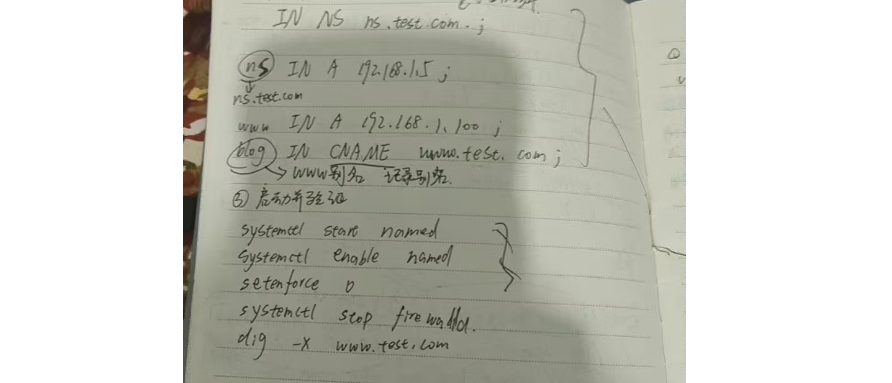 IN NS ns.test.com. ;
ns IN A 192.168.1.5 ;
ns.test.com
www IN A 192.168.1.100 ;
blog IN CNAME www.test.com ;
→ www别名 记录别名.
③ 启动并验证
systemctl start named
systemctl enable named
setenforce 0
systemctl stop firewalld.
dig -x www.test.com